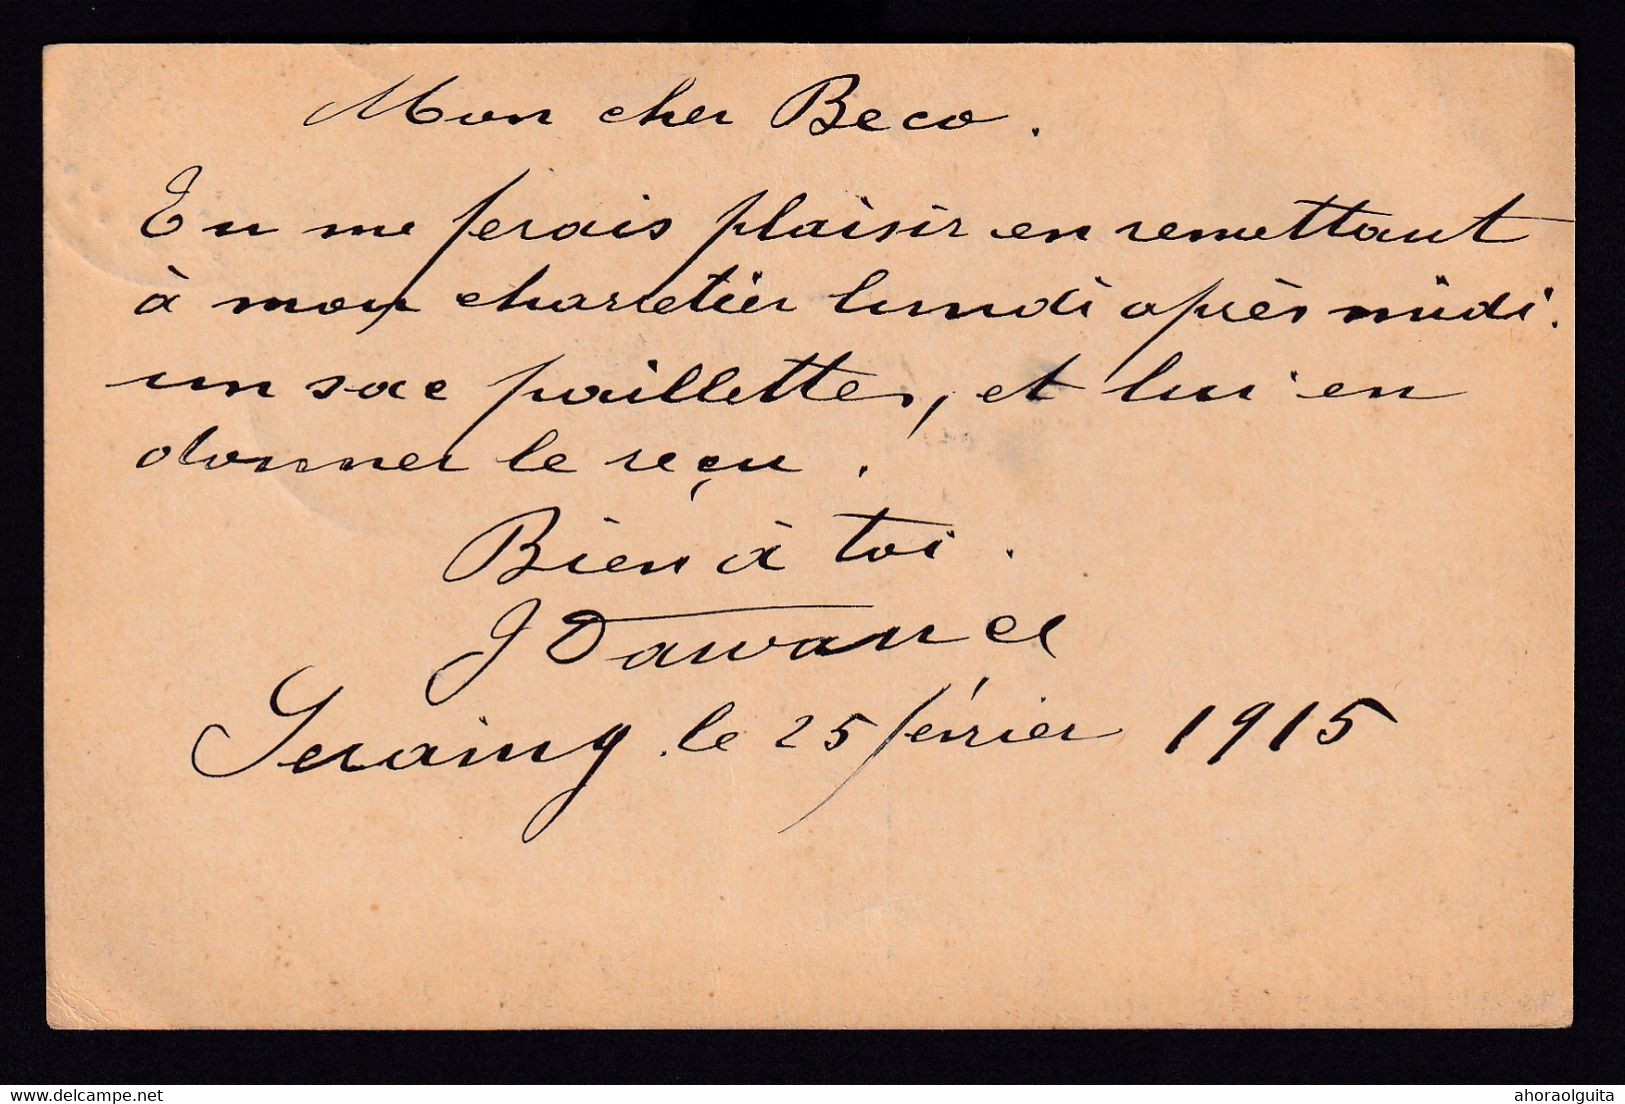 Mon cher Beco.
Tu me ferais plaisir en remettant
à mon charretier lundi après midi.
un sac paillettes, et lui en
donner le reçu.
Bien à toi.
J Dawance
Seraing le 25 février 1915
delcampe.net
ahoraolguita